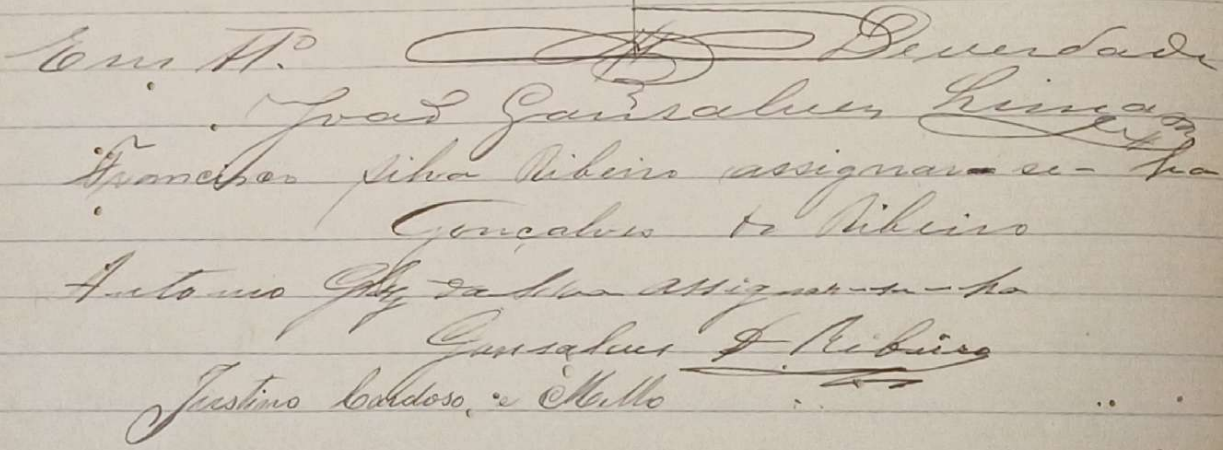 Em tt.º De verdade
João Gonsalves Lima
Francisco Silva Ribeiro assignar-se-ha
Gonçalves & Ribeiro
Antonio Glz da Silva assignar-se-ha
Gonsalves & Ribeiro
Justino Cardoso, e Mello